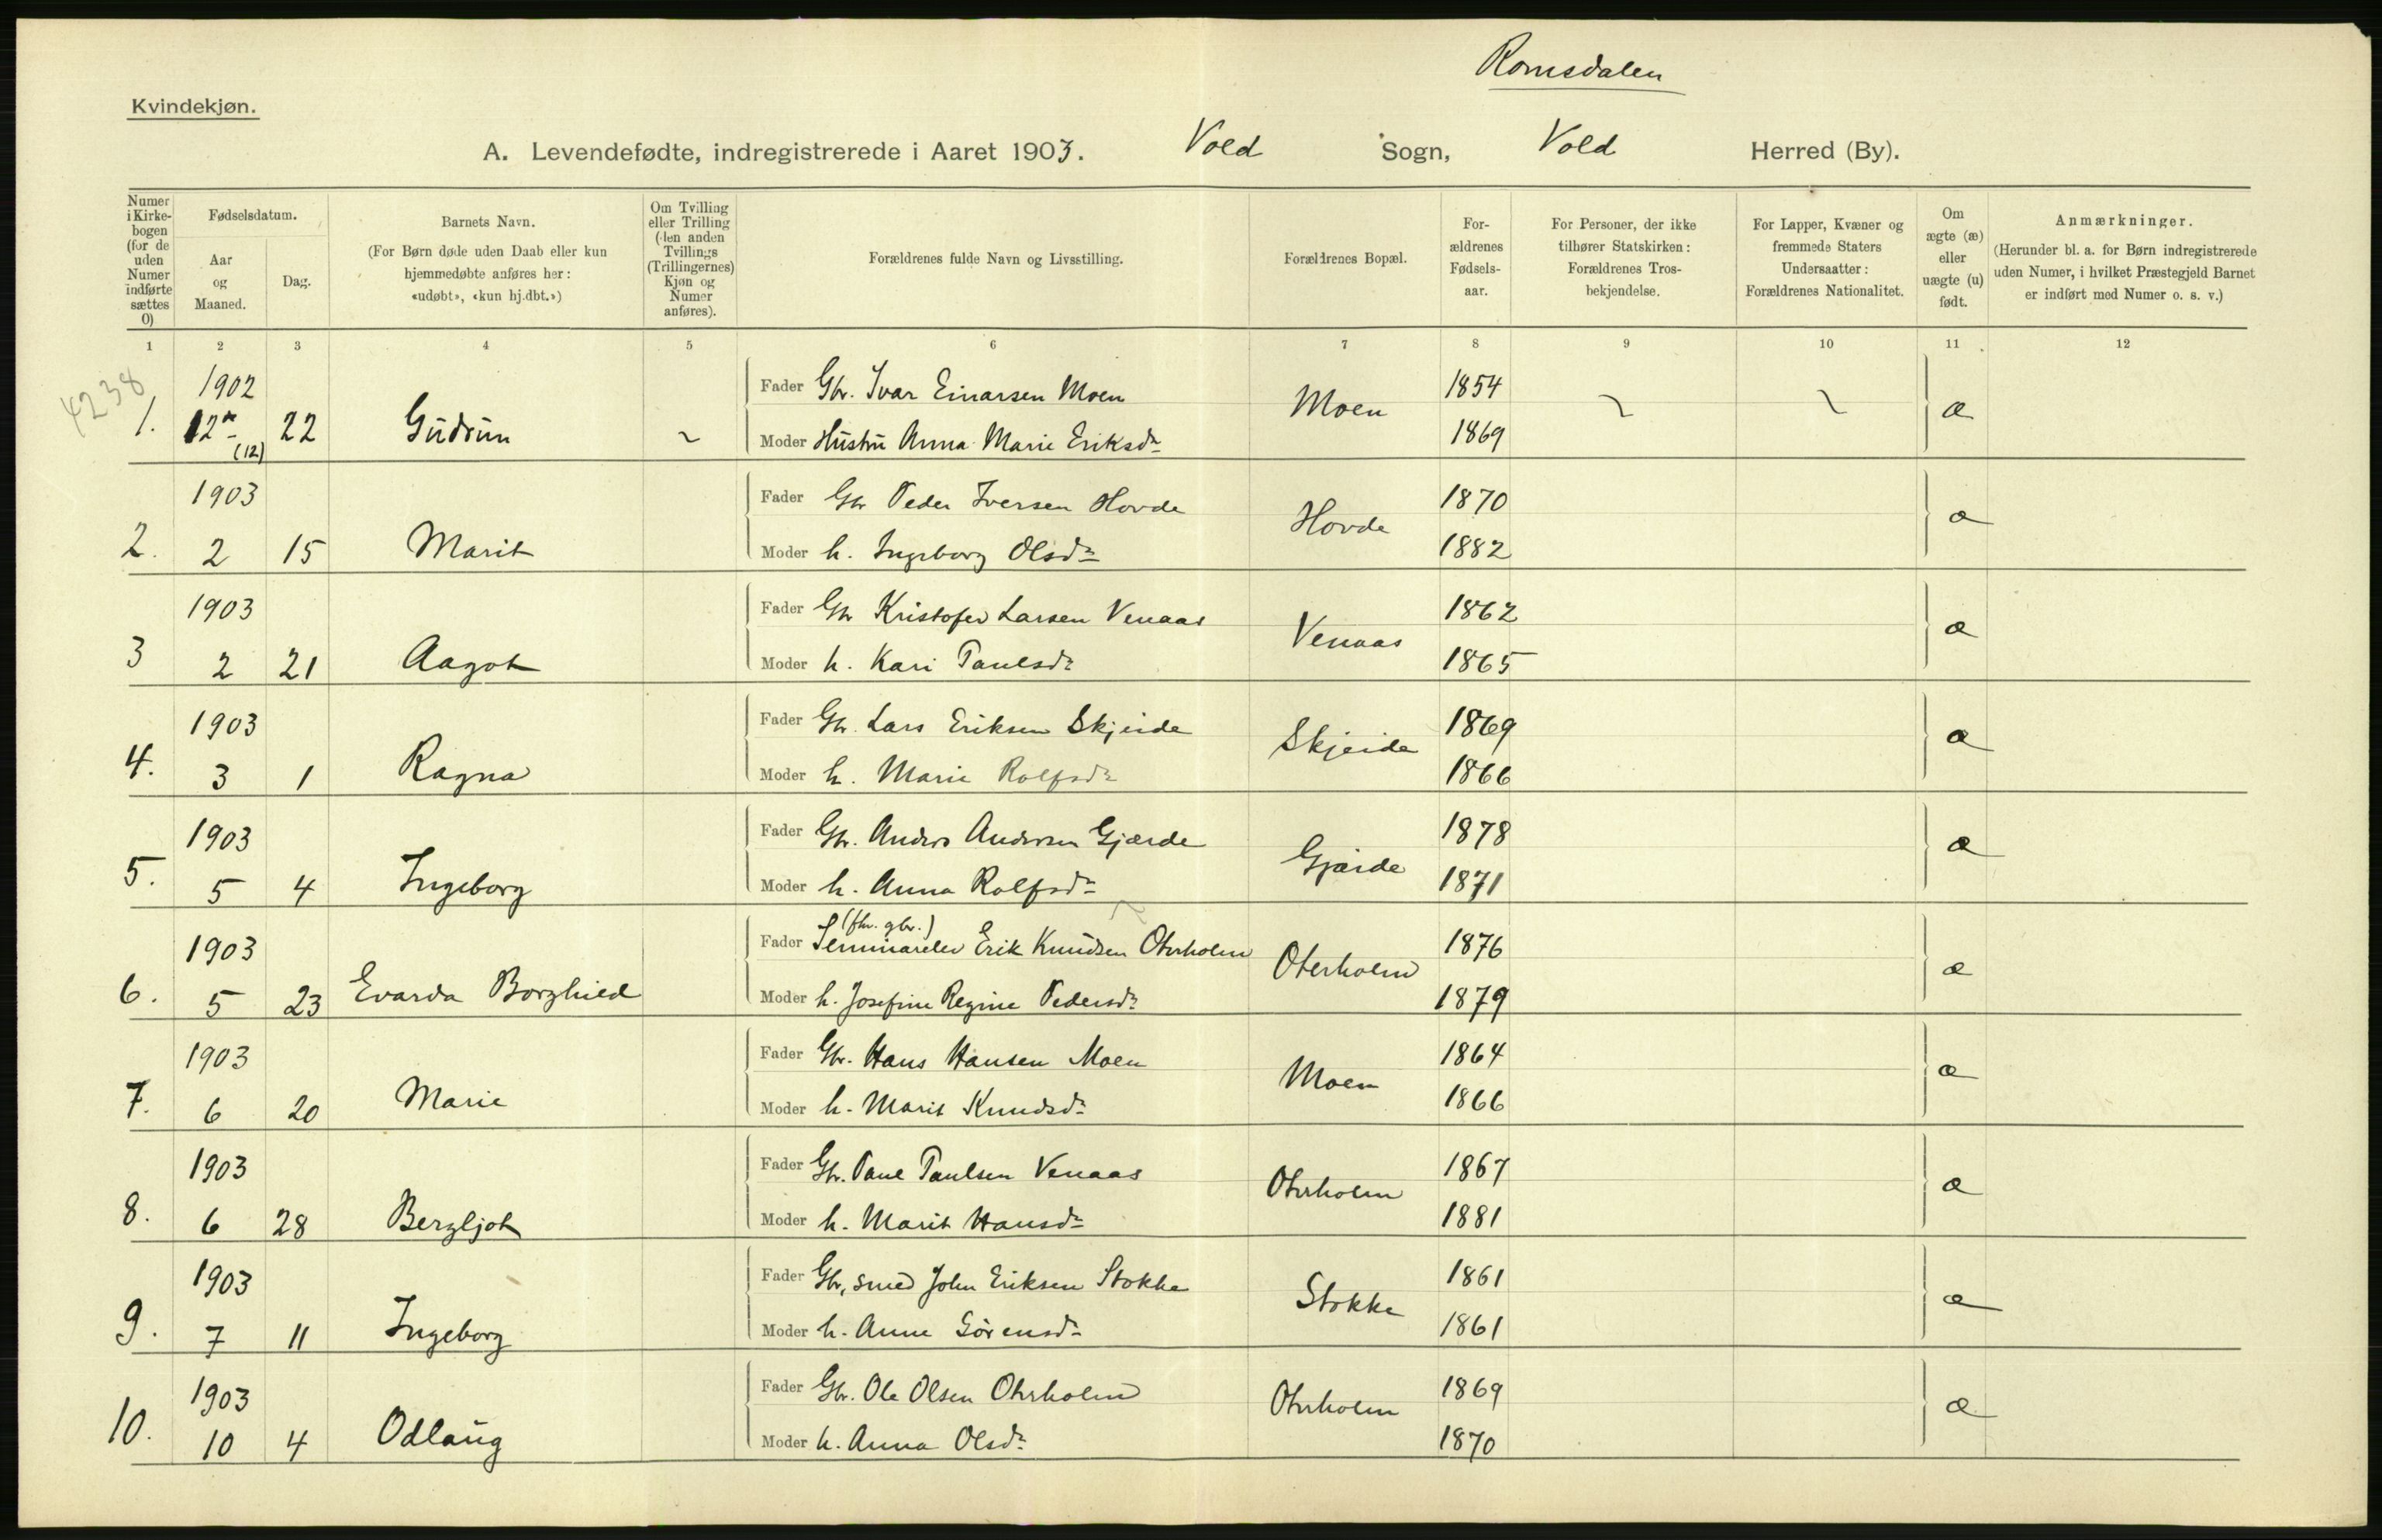 Romsdalen
Kvindekjøn.
A. Levendefødte, indregistrerede i Aaret 1903. Vold Sogn, Vold Herred (By).
Numer i Kirkebogen (for de uden Numer indførte sættes 0) | Fødselsdatum. Aar og Maaned. | Dag. | Barnets Navn. (For Børn døde uden Daab eller kun hjemmedøbte anføres her: «udøbt», «kun hj.dbt.») | Om Tvilling eller Trilling (den anden Tvillings (Trillingernes) Kjøn og Numer anføres). | Forældrenes fulde Navn og Livsstilling. | Forældrenes Bopæl. | Forældrenes Fødselsaar. | For Personer, der ikke tilhører Statskirken: Forældrenes Trosbekjendelse. | For Lapper, Kvæner og fremmede Staters Undersaatter: Forældrenes Nationalitet. | Om ægte (æ) eller uægte (u) født. | Anmærkninger. (Herunder bl. a. for Børn indregistrerede uden Numer, i hvilket Præstegjeld Barnet er indført med Numer o. s. v.)
1 2 3 4 5 6 7 8 9 10 11 12
4238
1902 Fader Gbr. Ivar Einarsen Moen Moen 1854 æ
1. 12 (12) 22 Gudrun Moder Hustru Anna Marie Eriksdr 1869
1903 Fader Gbr Peder Iversen Hovde Hovde 1870 æ
2. 2 15 Marit Moder h. Ingeborg Olsdr 1882
1903 Fader Gbr Kristofer Larsen Venaas Venaas 1862 æ
3 2 21 Aagot Moder h. Kari Paulsdr 1865
1903 Fader Gbr. Lars Eriksen Skjeide Skjeide 1869 æ
4. 3 1 Ragna Moder h. Marie Rolfsdr 1866
1903 Fader Gbr. Anders Andersen Gjærde Gjærde 1878 æ
5. 5 4 Ingeborg Moder h. Anna Rolfsdr 1871
(fhv. gbr.)
1903 Fader Seminarelev Erik Knudsen Oterholm Oterholm 1876 æ
6. 5 23 Evarda Borghild Moder h. Josefine Regine Pedersdr 1879
1903 Fader Gbr. Hans Hansen Moen Moen 1864 æ
7. 6 20 Marie Moder h. Marit Knudsdr 1866
1903 Fader Gbr. Paul Paulsen Venaas Oterholm 1867 æ
8. 6 28 Bergljot Moder h. Marit Hansdr 1881
1903 Fader Gbr, smed John Eriksen Stokke Stokke 1861 æ
9. 7 11 Ingeborg Moder h. Anne Sörensdr 1861
1903 Fader Gbr. Ole Olsen Oterholm Oterholm 1869 æ
10. 10 4 Odlaug Moder h. Anna Olsdr 1870